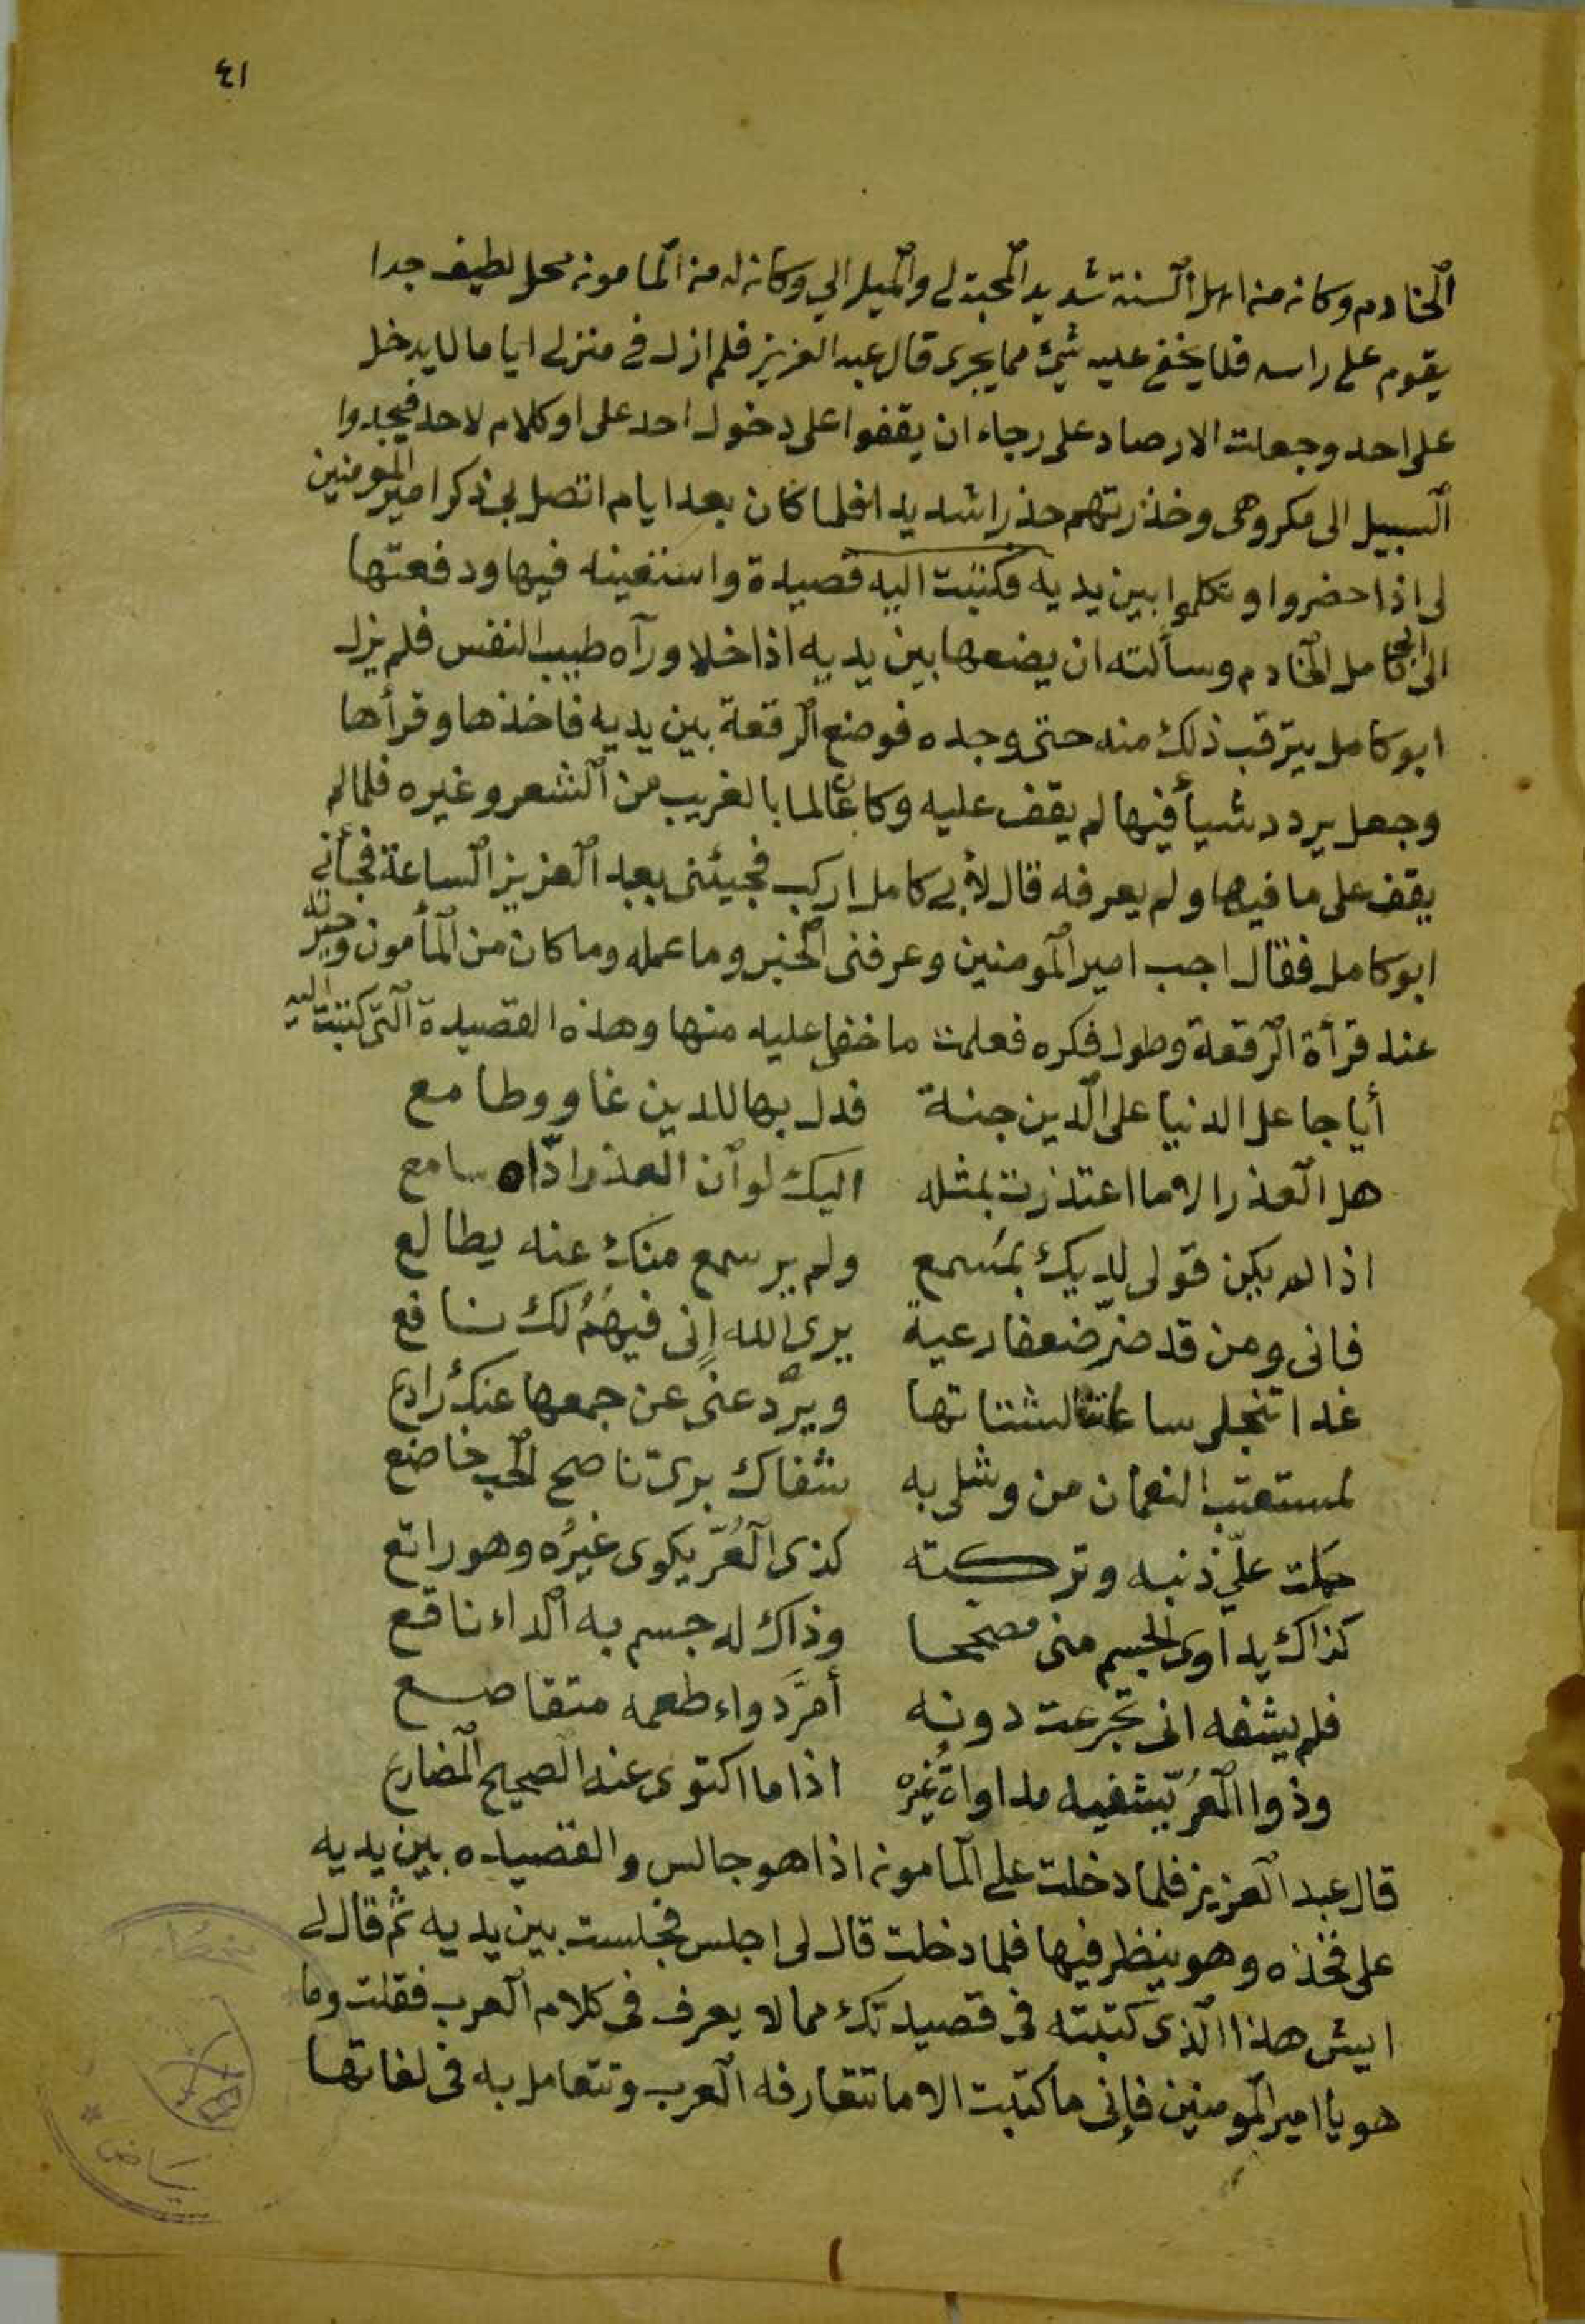 ٤١
الخادم وكان من اهل السنة شديد المحبة لي والميل الي وكان له من المامون محل لطيف جدا
يقوم على راسه فلا يخفى عليه شيئ مما يجرى قال عبد العزيز فلم ازل في منزلي اياما لا يدخل
على احد وجعلت الارصاد على رجاء ان يقفوا على دخول احد على او كلام لاحد فيجدوا
السبيل الى مكروهى وخذرتهم حذرا شديدا فلما كان بعد ايام اتصل بي ذكر امير المومنين
لى اذا حضروا وتكلموا بين يديه فكتبت اليه قصيدة واستغينه فيها ودفعتها
الى ابى كامل الخادم وسألته ان يضعها بين يديه اذا خلا ورآه طيب النفس فلم يزل
ابو كامل يترقب ذلك منه حتى وجده فوضع الرقعة بين يديه فاخذها وقرأها
وجعل يردد شيأ فيها لم يقف عليه وكان عالما بالغريب من الشعر وغيره فلما لم
يقف على ما فيها ولم يعرفه قال لأبي كامل اركب فجيئنى بعبد العزيز الساعة فجأني
ابو كامل فقال اجب امير المومنين وعرفنى الخبر وما عمله وما كان من المأمون وحيرته
عند قرأة الرقعة وطول فكره فعلمت ما خفى عليه منها وهذه القصيدة التى كتبت اليه
أيا جاعل الدنيا على الدين جنة فدل بها للدين غاو وطامع
هل العذر الا ما اعتذرت بمثله اليك لو أن العذر اذاه سامع
اذا لم يكن قولى لديك بمسمع ولم ير سمع منك عنه يطالع
فانى ومن قد ضر ضعفا رعية يرى الله إنى فيهم لك نافع
غدا تنجلى ساعات لشتاتها ويرد عنى عن جمعها عنك رادع
لمستعتب النعمان من وشى به شفاك برئ ناصح الحب خاضع
حملت علي ذنبه وتركته كذى العر يكوى غيره وهو راتع
كذاك يداوى الجسم منى مصححا وذاك له جسم به الداء ناقع
فلم يشفه انى تجرعت دونه أمر دواء طعمه متقاصع
وذوا العر يشفيه مداواة غيره اذا ما اكتوى عنه الصحيح المضارع
قال عبد العزيز فلما دخلت على المامون اذا هو جالس والقصيده بين يديه
على فخذه وهو ينظر فيها فلما دخلت قال لى اجلس فجلست بين يديه ثم قال لي
ايش هذا الذى كتبته فى قصيدتك مما لا يعرف فى كلام العرب فقلت وما
هو يا امير المومنين فإنى ما كتبت الا ما تتعارفه العرب وتتعامل به فى لغاتها